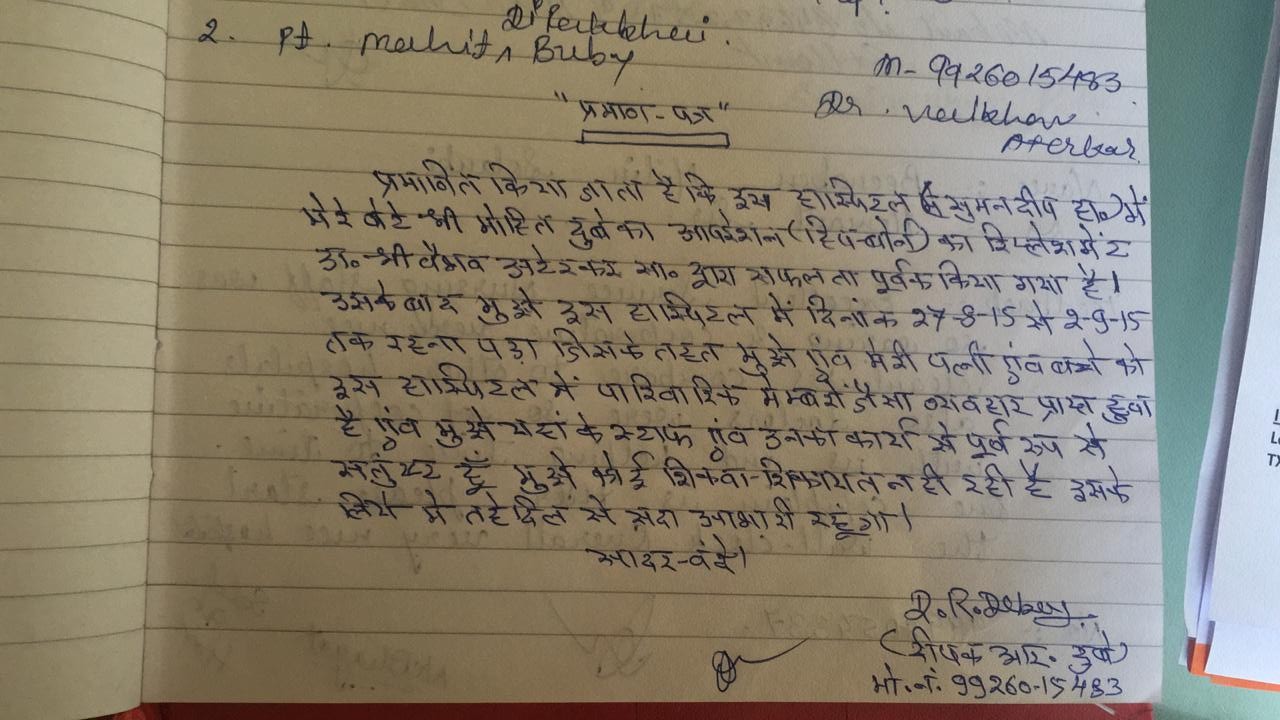 2. Pt. Mohit Buby
M- 9926015483
"प्रमाण-पत्र"
Dr. Vaibhav
Aterkar
प्रमाणित किया जाता है कि इस हास्पिटल (सुमनदीप हा०) में
मेरे बेटे श्री मोहित दुबे का आपरेशन (हिप-बोन) का रिप्लेशमेंट
डा० श्री वैभव अटेरकर सा० द्वारा सफलता पूर्वक किया गया है।
उसके बाद मुझे इस हास्पिटल में दिनांक 27-8-15 से 2-9-15
तक रहना पड़ा जिसके तहत मुझे एंव मेरी पत्नी एंव बच्चे को
इस हास्पिटल में पारिवारिक मेम्बरों जैसा व्यवहार प्राप्त हुवा
है एंव मुझे यहां के स्टाफ एंव उनका कार्य से पूर्ण रूप से
संतुष्ट हूँ मुझे कोई शिकवा-शिकायत नही रही है इसके
लिये मे तहेदिल से सदा आभारी रहूंगा।
सादर-वंदे।
D.R.Dubey
(दीपक आर. दुबे)
मो.नं. 99260-15483